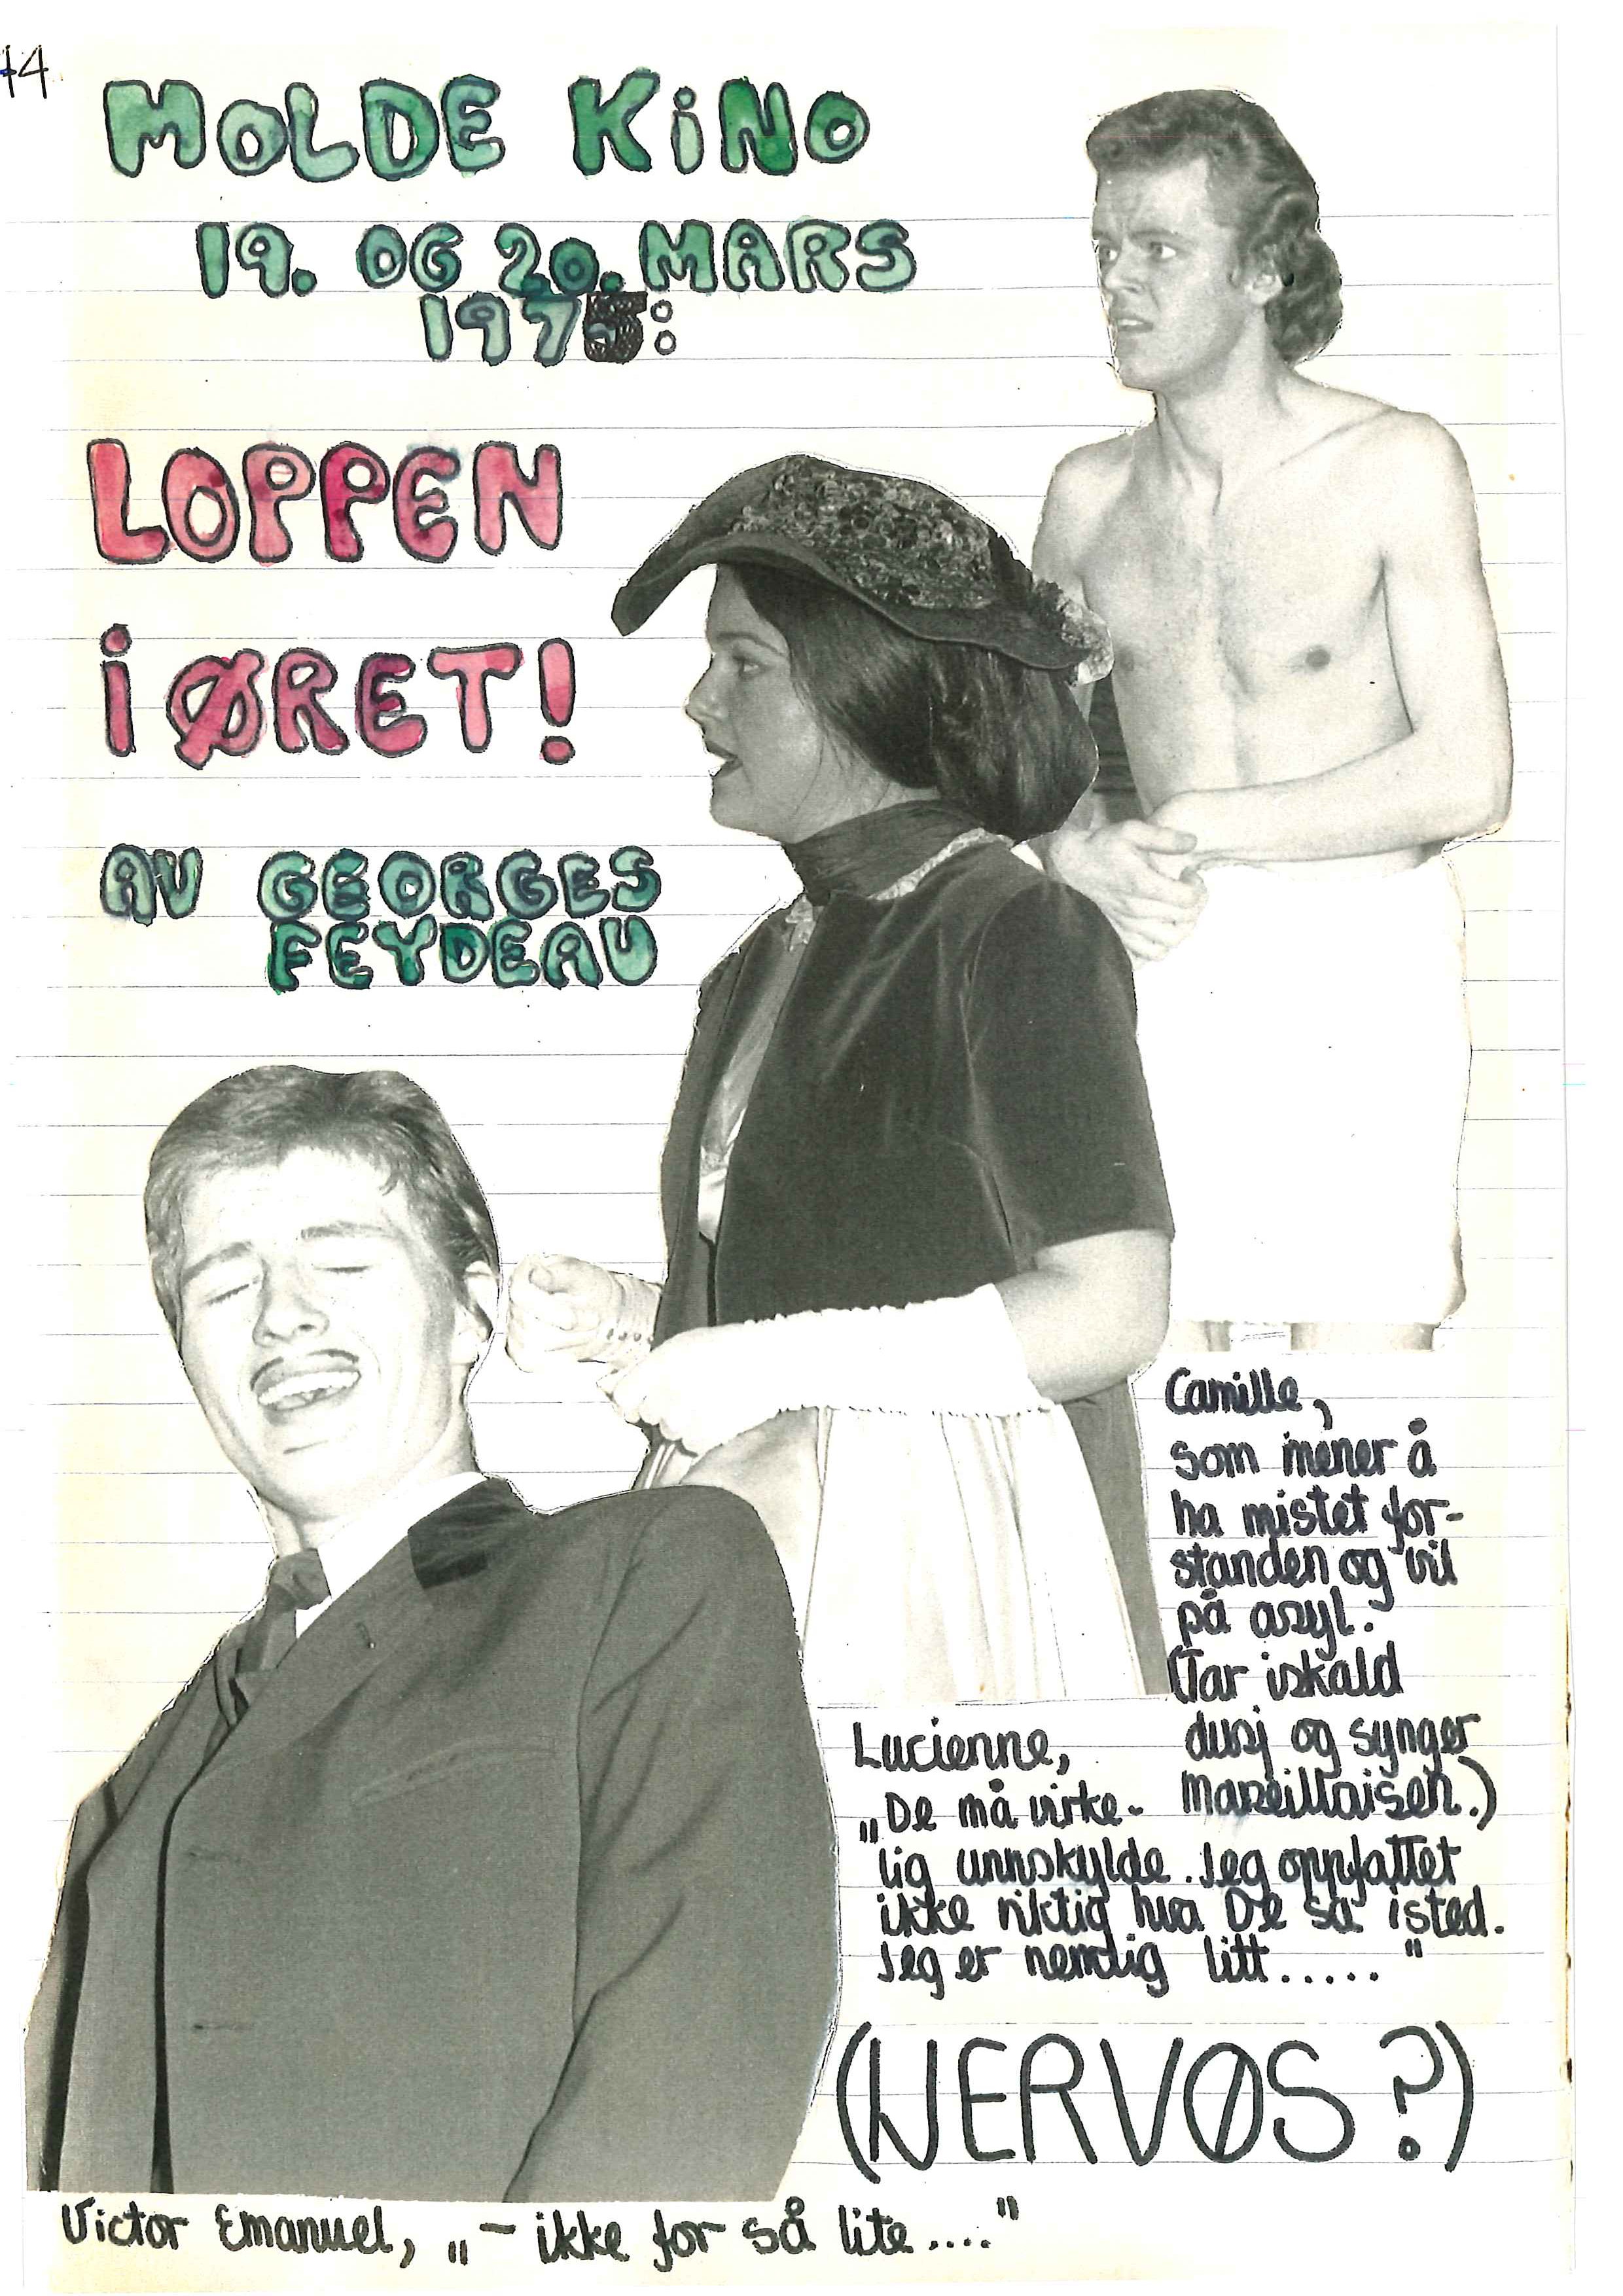 44
MOLDE KiNO
19. OG 20. MARS
1975:
LOPPEN
i ØRET!
AV GEORGES
FEYDEAU
Camille,
som mener å
ha mistet for-
standen og vil
på asyl.
(Tar iskald
dusj og synger
Marseillaisen.)
Lucienne,
„De må virke-
lig unnskylde. Jeg oppfattet
ikke riktig hva De sa isted.
Jeg er nemlig litt..... "
(NERVØS?)
Victor Emanuel, „– ikke for så lite...."